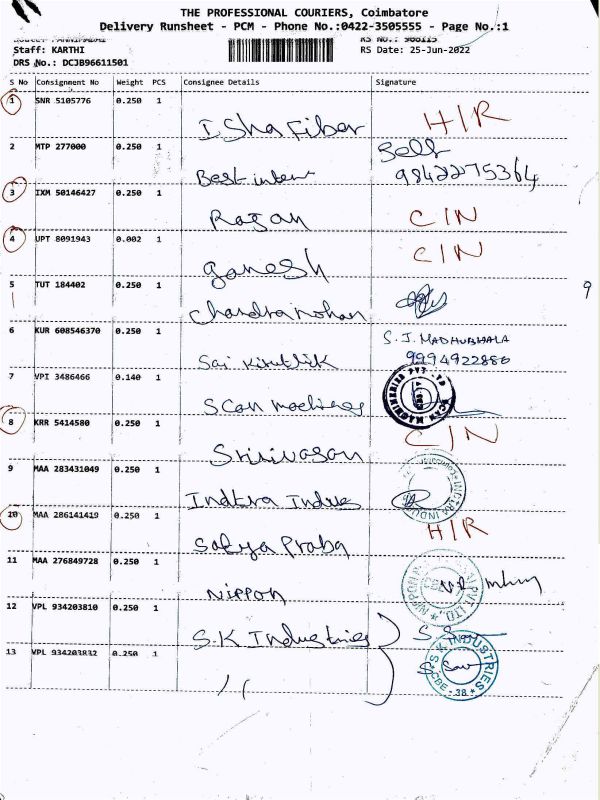 THE PROFESSIONAL COURIERS, Coimbatore
Delivery Runsheet - PCM - Phone No.:0422-3505555 - Page No.:1
RS No.: 968115
Staff: KARTHI
RS Date: 25-Jun-2022
DRS No.: DCJB96611501
S No Consignment No Weight PCS Consignee Details Signature
1 SNR 5105776 0.250 1 Isha Fiber H/R
2 MTP 277000 0.250 1 Best inter Self
9842275364
3 IXM 50146427 0.250 1 Ragan C/N
4 UPT 8091943 0.002 1 ganesh C/N
5 TUT 184402 0.250 1 Chandra mohan
9
6 KUR 608546370 0.250 1 Sai Kiruthik S.J. MADHUBHALA
9994922880
7 VPI 3486466 0.140 1 Scan machines
8 KRR 5414580 0.250 1 Srinivasan C/N
9 MAA 283431049 0.250 1 Indtra Indus
10 MAA 286141419 0.250 1 Satya Praba H/R
11 MAA 276849728 0.250 1 Nippon
12 VPL 934203810 0.250 1 S.K Industries
13 VPL 934203832 0.250 1 ,,
S K INDUSTRIES
CBE - 38